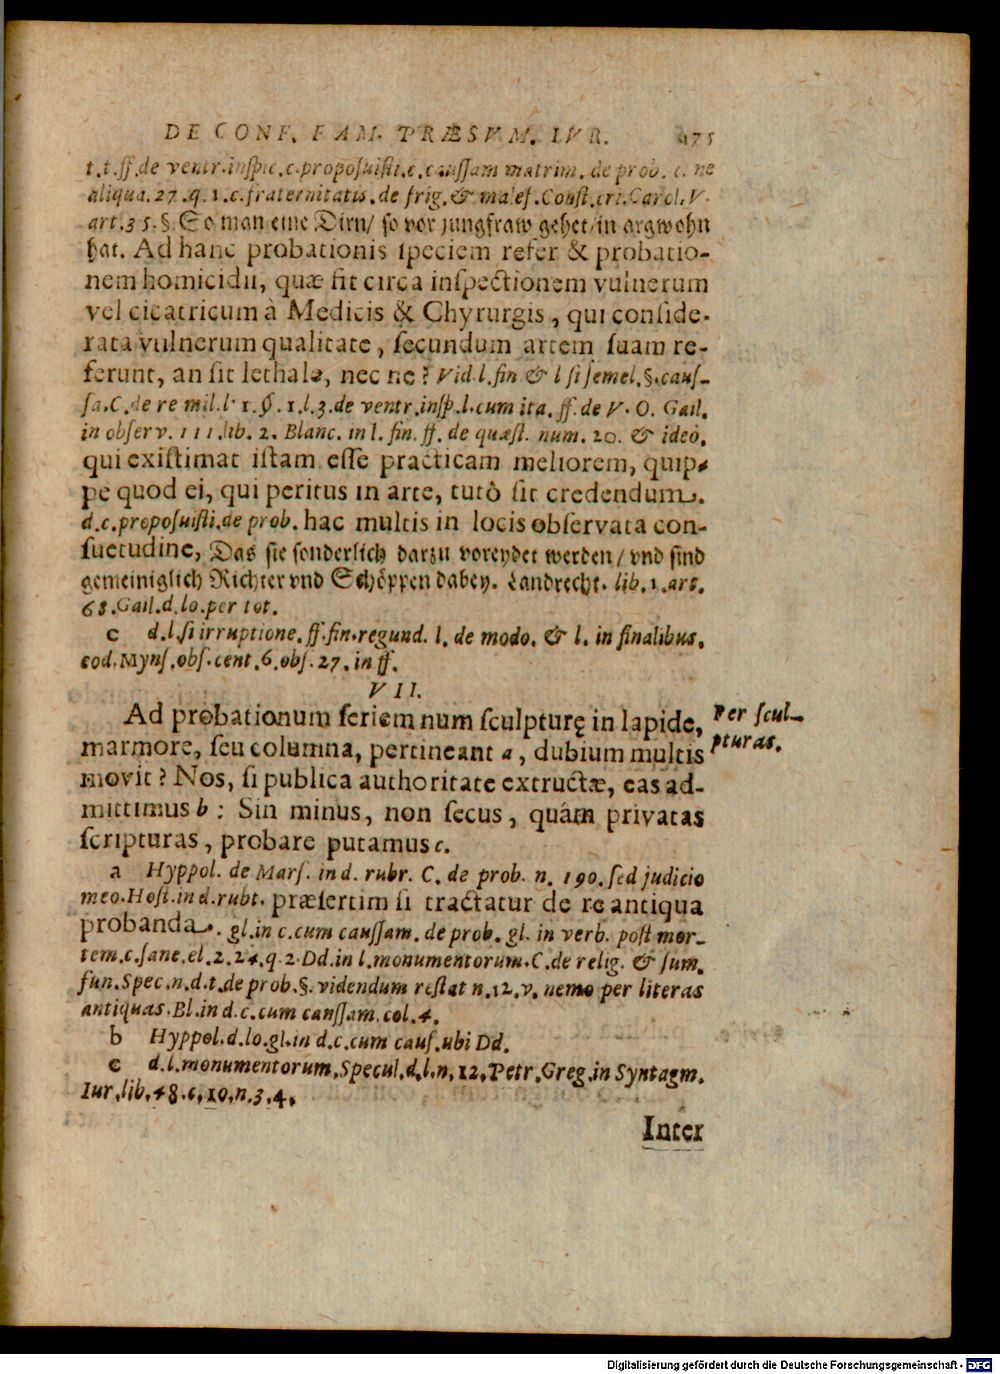 DE CONF. FAM. PRÆSVM. IVR. 175
t.t.ff.de ventr.inspic.c.proposuisti.c.caussam matrim. de prob. c. ne
aliqua.27.q.1.c.fraternitatis.de frig.& malef.Const.cri.Carol.V.
art.35.§.So man eine Dirn/ so vor jungfraw gehet/in argwohn
hat. Ad hanc probationis speciem refer & probatio-
nem homicidii, quæ fit circa inspectionem vulnerum
vel cicatricum à Medicis & Chyrurgis, qui conside-
rata vulnerum qualitate, secundum artem suam re-
ferunt, an sit lethale, nec ne? Vid.l.fin & l si semel.§.caus-
sa.C.de re mil.l. 1.§.1.l.3.de ventr.insp.l.cum ita. ff.de V.O. Gail.
in observ. 111.lib. 2. Blanc. in l. fin. ff. de quæst. num. 20. & ideò,
qui existimat istam esse practicam meliorem, quip-
pe quod ei, qui peritus in arte, tutò sit credendum.
d.c.proposuisti.de prob. hac multis in locis observata con-
suetudine, Das sie sonderlich darzu voreydet werden/ vnd sind
gemeiniglich Richter vnd Schöppen dabey. Landrecht. lib.1.art.
68.Gail.d.lo.per tot.
c d.l.si irruptione.ff.fin.regund. l. de modo. & l. in finalibus.
eod.Myns.obs.cent.6.obs.27.in ff.
VII.
Ad probationum seriem num sculpturę in lapide,
marmore, seu columna, pertineant a, dubium multis
movit? Nos, si publica authoritate extructæ, eas ad-
mittimus b: Sin minus, non secus, quám privatas
scripturas, probare putamus c.
Per scul-
pturas.
a Hyppol. de Mars. in d. rubr. C. de prob. n. 190. sed judicio
meo.Host.in d.rubr. præsertim si tractatur de re antiqua
probanda. gl.in c.cum caussam. de prob. gl. in verb. post mor-
tem.c.sane.el.2.24.q.2.Dd.in l.monumentorum.C.de relig. & sum.
fun.Spec.n.d.t.de prob.§. videndum restat n.12.v. nemo per literas
antiquas.Bl.in d.c.cum caussam.col.4.
b Hyppol.d.lo.gl.in d.c.cum caus.ubi Dd.
c d.l.monumentorum.Specul.d.l.n.12.Petr.Greg.in Syntagm.
Iur.lib.48.c.10.n.3.4.
Inter
Digitalisierung gefördert durch die Deutsche Forschungsgemeinschaft - DFG